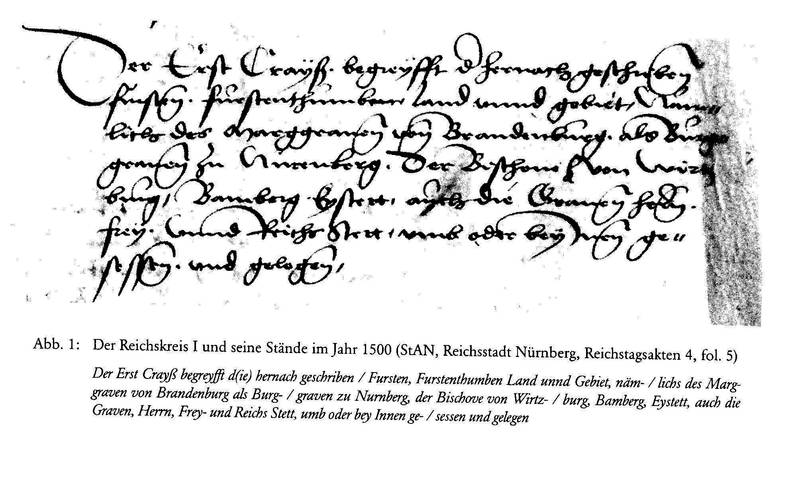 Der Erst Crayß. begreyfft d hernach geschriben
Fursten. furstenthumben, land unnd gebiet, Näm-
lichs des Marggraven von Brandenburg. als Burg
graven zu Nurenberg. Der Bischove von Wirtz
burg, Bamberg Eystett, auch die Graven herrn.
frey. Unnd Reichs Stett, umb oder bey Innen ge=
sessen. und gelegen,
Abb. 1: Der Reichskreis I und seine Stände im Jahr 1500 (StAN, Reichsstadt Nürnberg, Reichstagsakten 4, fol. 5)
Der Erst Crayß begreyfft d(ie) hernach geschriben / Fursten, Furstenthumben Land unnd Gebiet, näm- / lichs des Marg-
graven von Brandenburg als Burg- / graven zu Nurnberg, der Bischove von Wirtz- / burg, Bamberg, Eystett, auch die
Graven, Herrn, Frey- und Reichs Stett, umb oder bey Innen ge- / sessen und gelegen